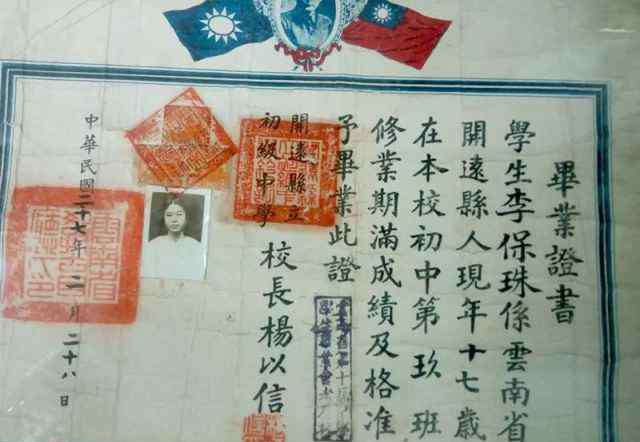 畢業證書
學生李保珠係雲南省
開遠縣人現年十七歲
在本校初中第玖班
修業期滿成績及格准
予畢業此證
開遠縣立
初級中學
校長楊以信
中華民國二十七年 二月二十八日